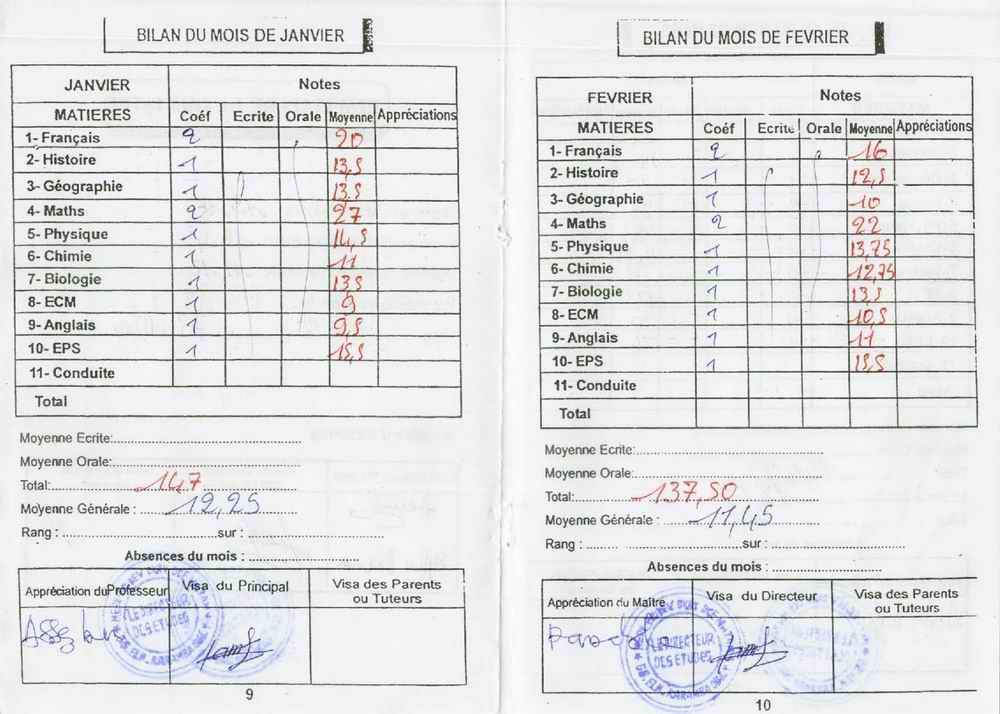 BILAN DU MOIS DE JANVIER
JANVIER Notes
MATIERES Coéf Ecrite Orale Moyenne Appréciations
1- Français 2 20
2- Histoire 1 13,5
3- Géographie 1 13,5
4- Maths 2 27
5- Physique 1 14,5
6- Chimie 1 11
7- Biologie 1 13,5
8- ECM 1 9
9- Anglais 1 9,5
10- EPS 1 15,5
11- Conduite
Total
Moyenne Ecrite:
Moyenne Orale:
Total: 147
Moyenne Générale : 12,25
Rang : sur :
Absences du mois :
Appréciation du Professeur Visa du Principal Visa des Parents ou Tuteurs
Assez bien
LE DIRECTEUR
DES ETUDES
9
BILAN DU MOIS DE FEVRIER
FEVRIER Notes
MATIERES Coéf Ecrite Orale Moyenne Appréciations
1- Français 2 16
2- Histoire 1 12,5
3- Géographie 1 10
4- Maths 2 22
5- Physique 1 13,75
6- Chimie 1 12,75
7- Biologie 1 13,5
8- ECM 1 10,5
9- Anglais 1 11
10- EPS 1 15,5
11- Conduite
Total
Moyenne Ecrite:
Moyenne Orale:
Total: 137,50
Moyenne Générale : 11,45
Rang : sur :
Absences du mois :
Appréciation du Maître Visa du Directeur Visa des Parents ou Tuteurs
LE DIRECTEUR
DES ETUDES
10